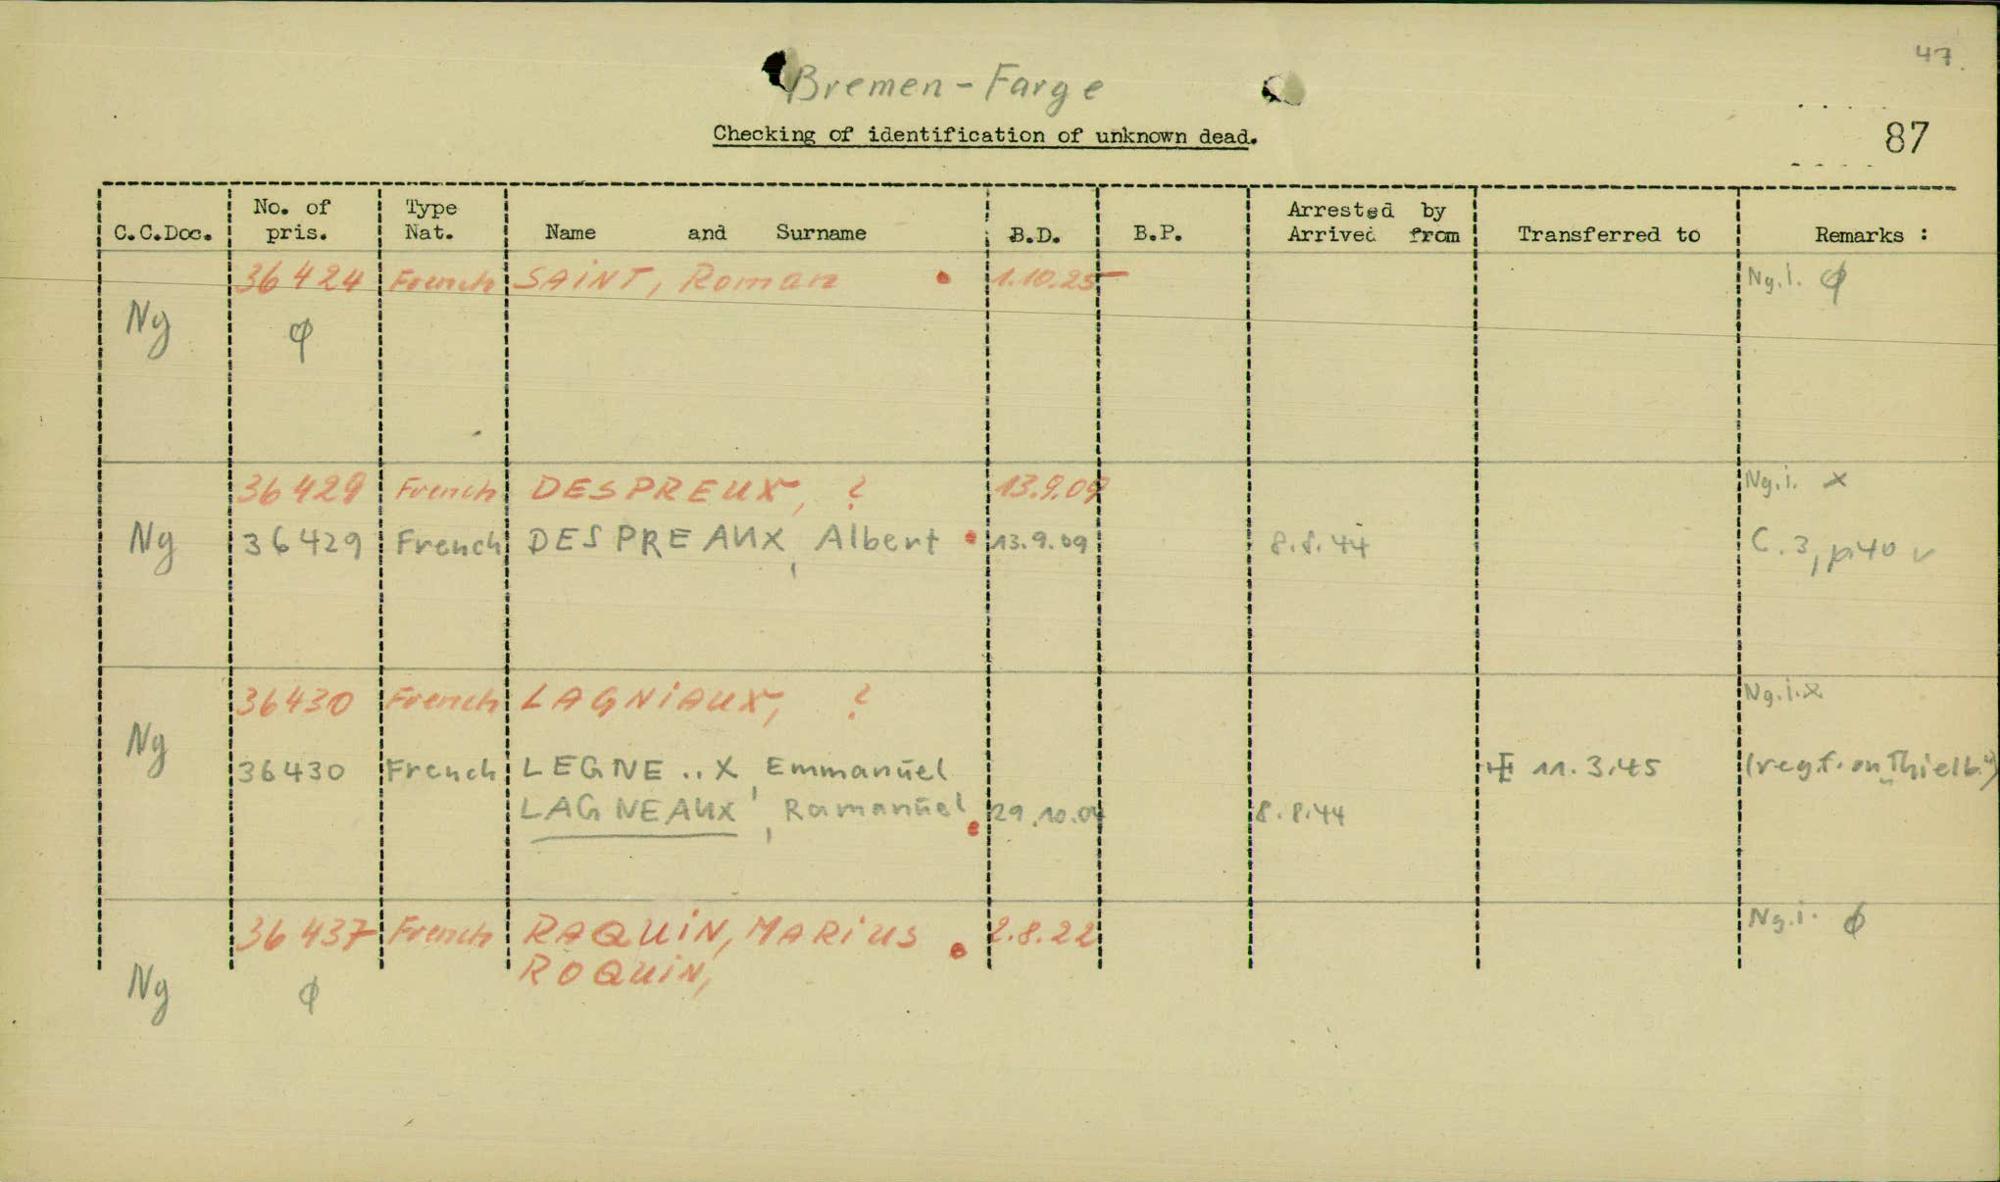 47.
Bremen-Farge
Checking of identification of unknown dead.
87
C.C.Doc. No. of pris. Type Nat. Name and Surname B.D. B.P. Arrested by Arrived from Transferred to Remarks :
36424 French SAINT, Roman 1.10.25 Ng.i. φ
Ng φ
36429 French DESPREUX, ? 13.9.09 Ng.i. x
Ng 36429 French DESPREAUX, Albert 13.9.09 8.8.44 C.3, p.40 v
36430 French LAGNiAUX, ? Ng.i.x
Ng 36430 French LEGNE..X, Emmanŭel 11.3.45
LAGNEAUX, Ramanŭel 29.10.04 8.8.44
36437 French RAQUiN, MARiUS 2.8.22 Ng.i. φ
ROQUiN,
Ng φ